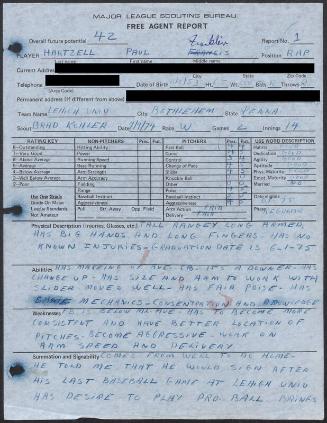 MAJOR LEAGUE SCOUTING BUREAU
FREE AGENT REPORT
Overall future potential 42
Report No. 1
PLAYER HARTZELL PAUL Franklin
Last name First name Middle name
Position RHP
Current Address
Telephone
Date of Birth
(Area Code)
Permanent address (if different from above)
Team Name LEHIGH UNIV City BETHLEHEM State PENNA
Scout BRAD KOHLER Race W Games 2 Innings 14
RATING KEY NON-PITCHERS Pres. Fut. PITCHERS Pres. Fut. USE WORD DESCRIPTION
8—Outstanding Hitting Ability Fast Ball
7—Very Good Power Curve
6—Above Average Running Speed Control
5—Average Base Running Change of Pace
4—Below Average Arm Strength Slider
3—Well Below Average Arm Accuracy Knuckle Ball
2—Poor Fielding Other
Range Poise
Use One Grade Baseball Instinct Baseball Instinct
Grade On Major Aggressiveness Aggressiveness
League Standards Pull Str. Away Opp. Field Arm Action FAIR
Not Amateur Delivery FAIR
Physical Description (Injuries, Glasses, etc.) TALL RANGEY LONG ARMED,
HAS BIG HANDS AND LONG FINGERS - HAS NO
KNOWN INJURIES - GRADUATION DATE IS 6-1-75
Abilities HAS MAKING OF AVE. CB. IT'S A DOWNER - HAS
CHANGE UP - HAS SIZE AND ARM TO WORK WITH
SLIDER MOVED WELL - HAS FAIR POISE - HAS
MECHANICS - CONSENTRATION AND KNOWLEDGE
Weaknesses F.B. IS BELOW ML-AVE - HAS TO BECOME MORE
CONSISTENT AND HAVE BETTER LOCATION OF
PITCHES - BECOME AGGRESSIVE - WORK ON
ARM SPEED AND DELIVERY
Summation and Signability COMES FROM WELL TO DO HOME -
HE TOLD ME THAT HE WOULD SIGN AFTER
HIS LAST BASEBALL GAME AT LEHIGH UNIV
HAS DESIRE TO PLAY PRO BALL BRINGS